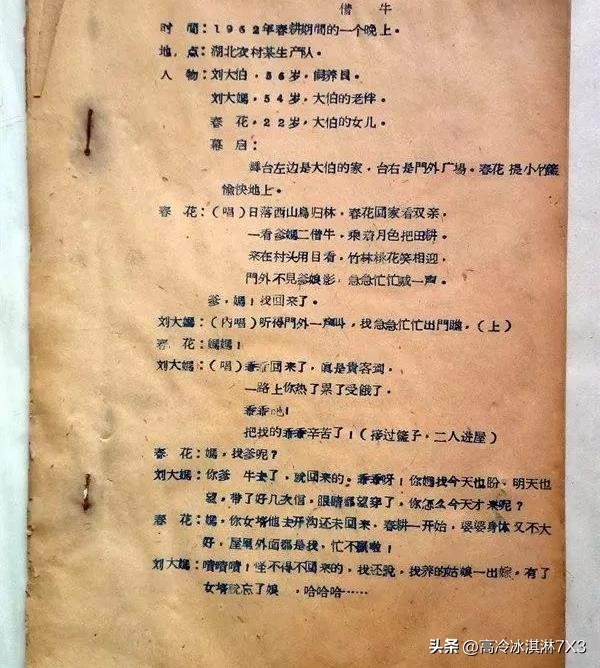 借牛
时 間：1962年春耕期間的一个晚上。
地 点：湖北农村某生产队。
人 物：刘大伯，56岁，飼养員。
刘大媽，54岁，大伯的老伴。
春 花，22岁，大伯的女儿。
幕启：
舞台左边是大伯的家，台右是門外广場。春花 提小竹籃
愉快地上。
春 花：（唱）日落西山鳥归林，春花回家看双亲，
一看爹媽二借牛，乘着月色把田耕。
来在村头用目看，竹林桃花笑相迎，
門外不見爹娘影，急急忙忙喊一声。
爹，媽！我回来了。
刘大媽：（內唱）听得門外一声叫，我急急忙忙出門瞧，（上）
春 花：媽媽！
刘大媽：（唱）乖乖回来了，眞是貴客到。
一路上你热了累了受餓了。
乖乖吔！
把我的乖乖辛苦了！（接过籃子，二人进屋）
春 花：媽，我爹呢？
刘大媽：你爹 牛去了，就回来的。乖乖呀！你媽我今天也盼，明天也
望，带了好几次信，眼睛都望穿了，你怎么今天才来呢？
春 花：媽，你女壻他去开沟还未回来，春耕一开始，婆婆身体又不大
好，屋里外面都是我，忙不贏啦！
刘大媽：嘖嘖嘖！怪不得不回来的，我还說，我养的姑娘一出嫁，有了
女壻就忘了娘 ，哈哈哈……
头条 @高冷冰淇淋7X3